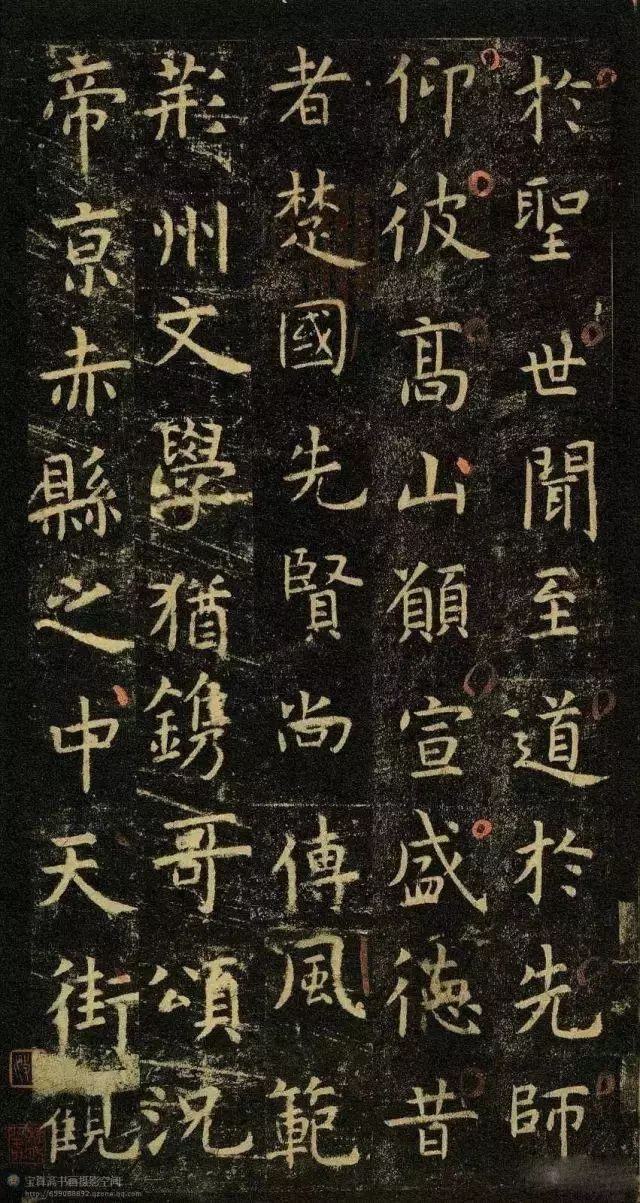 於聖世聞至道於先師
仰彼高山願宣盛德昔
者楚國先賢尚傳風範
荊州文學猶鐫哥頌況
帝京赤縣之中天街觀
宝真斋书画摄影空间
http://659088692.qzone.qq.com